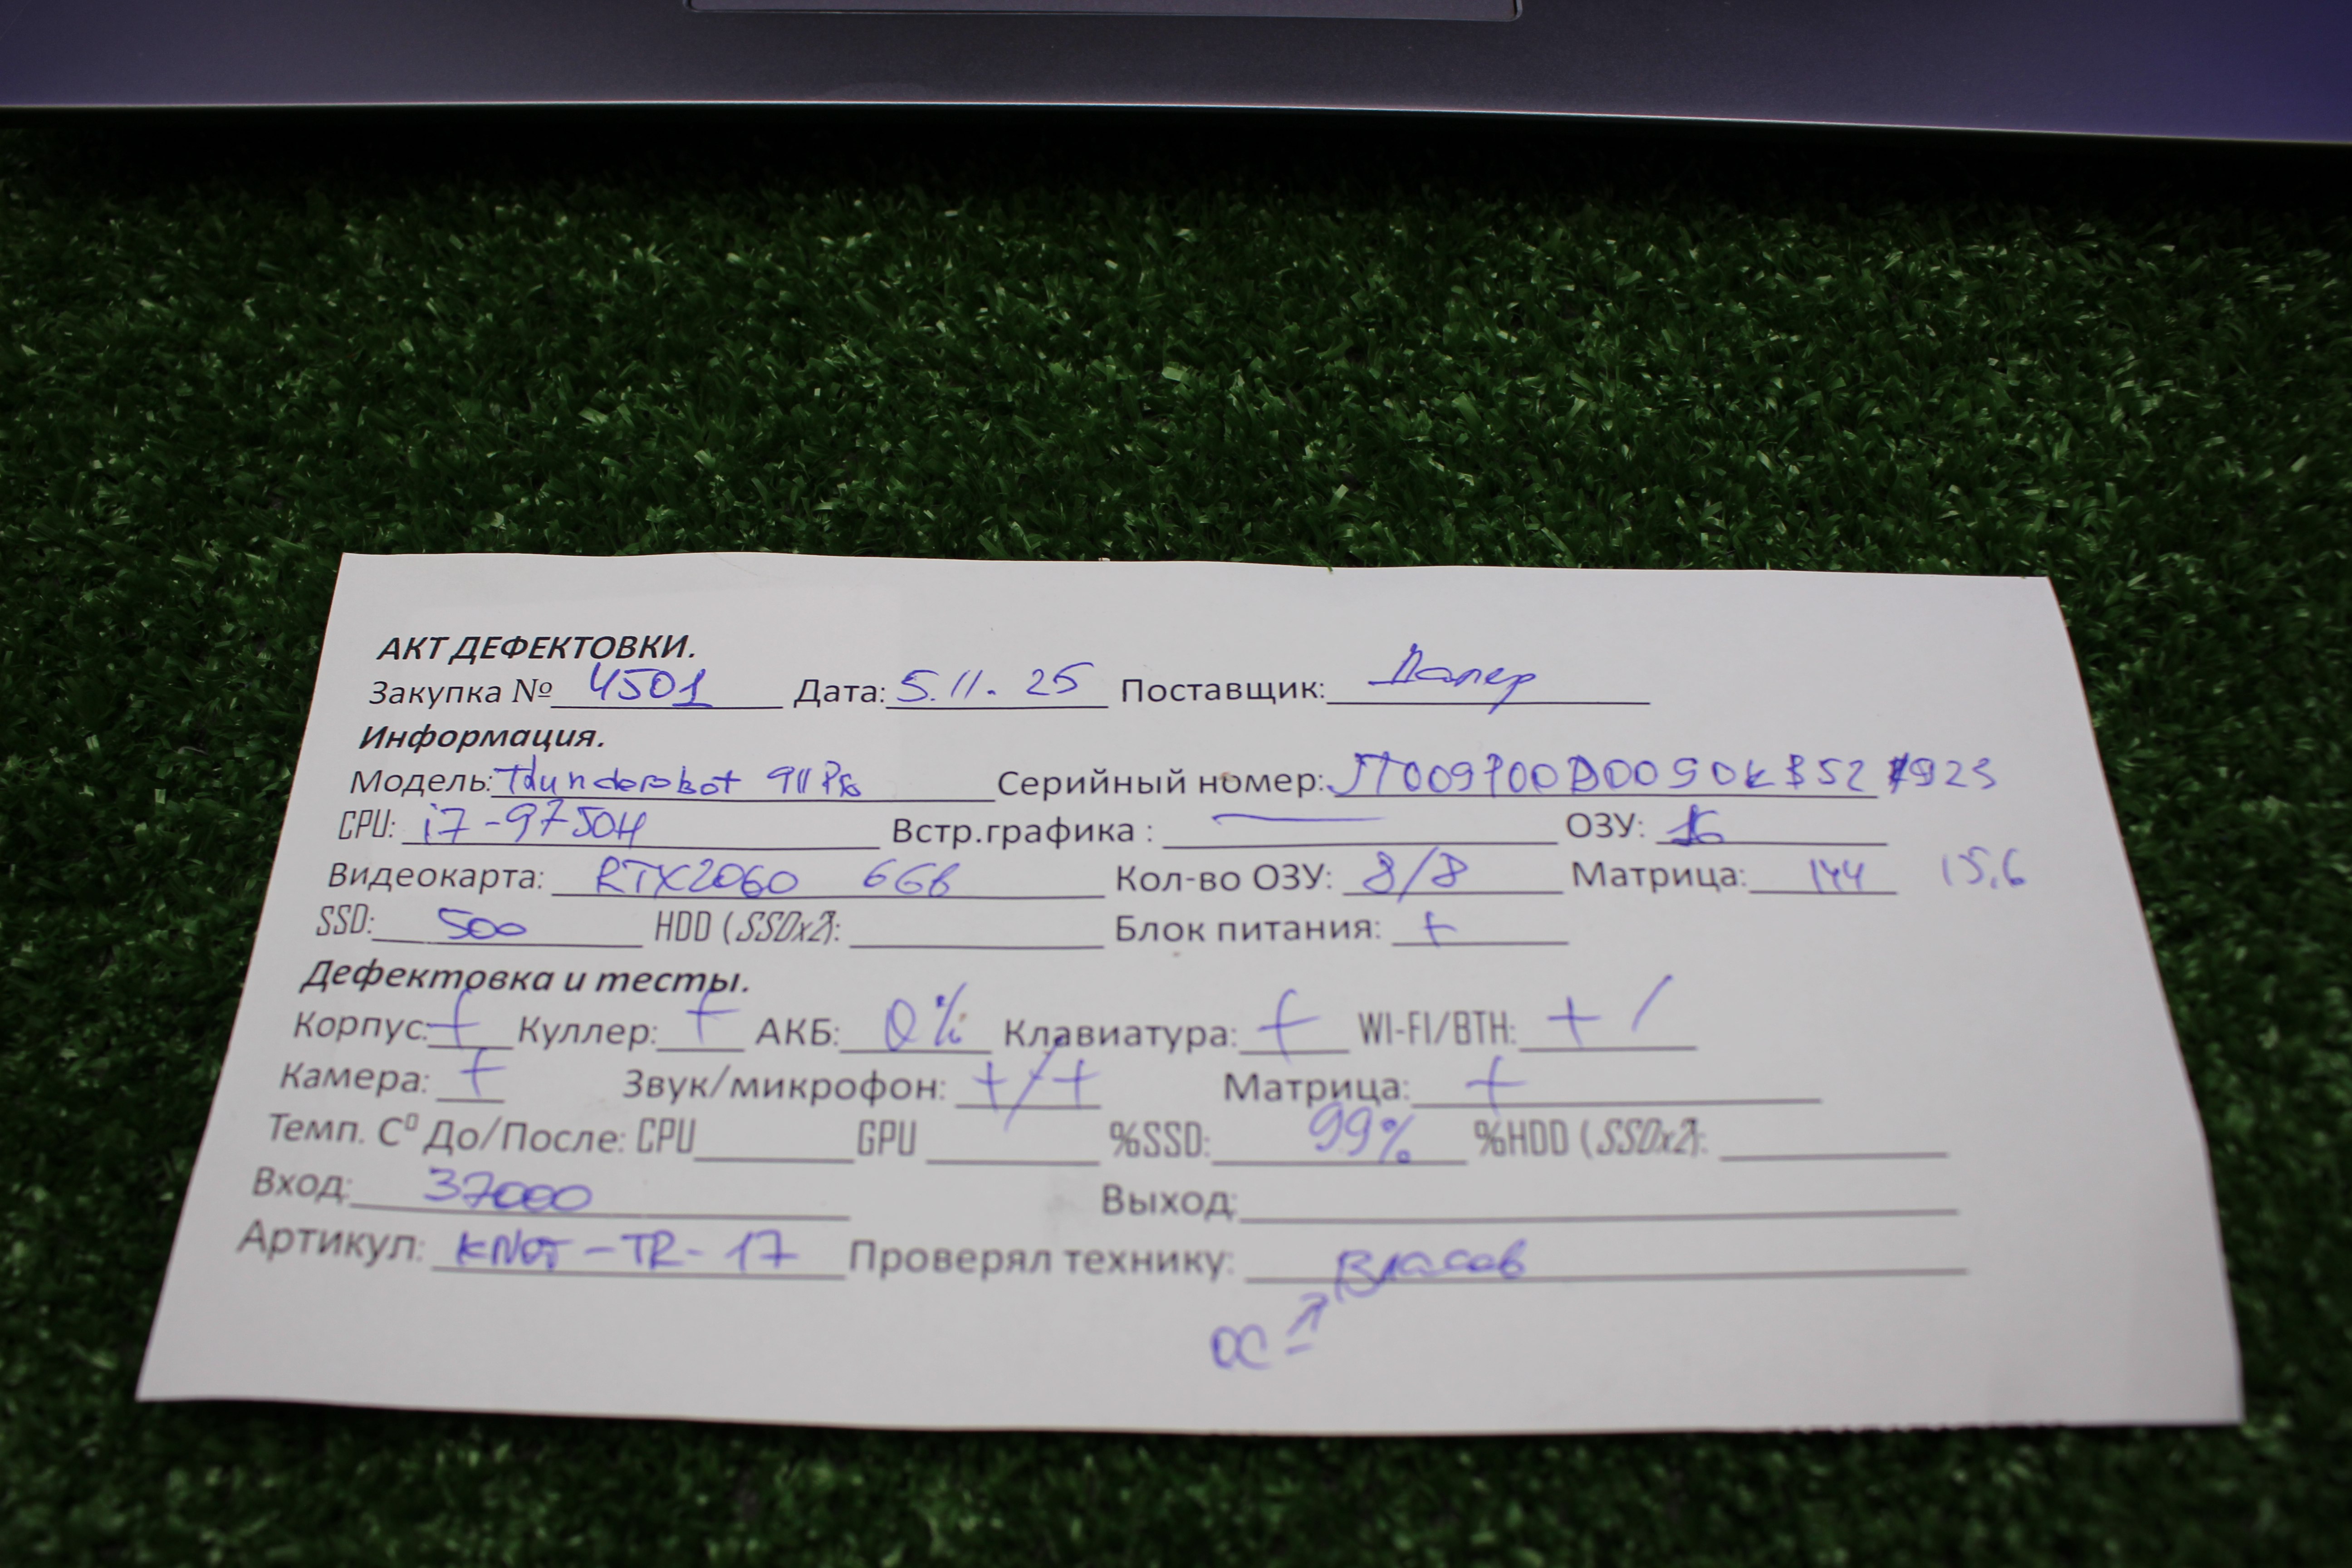 АКТ ДЕФЕКТОВКИ.
Закупка № 4501 Дата: 5.11.25 Поставщик: Далер
Информация.
Модель: Thunderobot 911 Серийный номер:
CPU: i7-9750H Встр.графика : — ОЗУ: 16
Видеокарта: RTX2060 6Gb Кол-во ОЗУ: 8/8 Матрица: 144 15,6
SSD: 500 HDD (SSDx2): Блок питания: +
Дефектовка и тесты.
Корпус: + Куллер: + АКБ: 0% Клавиатура: + WI-FI/BTH: + /
Камера: + Звук/микрофон: +/+ Матрица: +
Темп. C⁰ До/После: CPU GPU %SSD: 99% %HDD (SSDx2):
Вход: 37000 Выход:
Артикул: KNOT-TR-17 Проверял технику: Власов
ОС